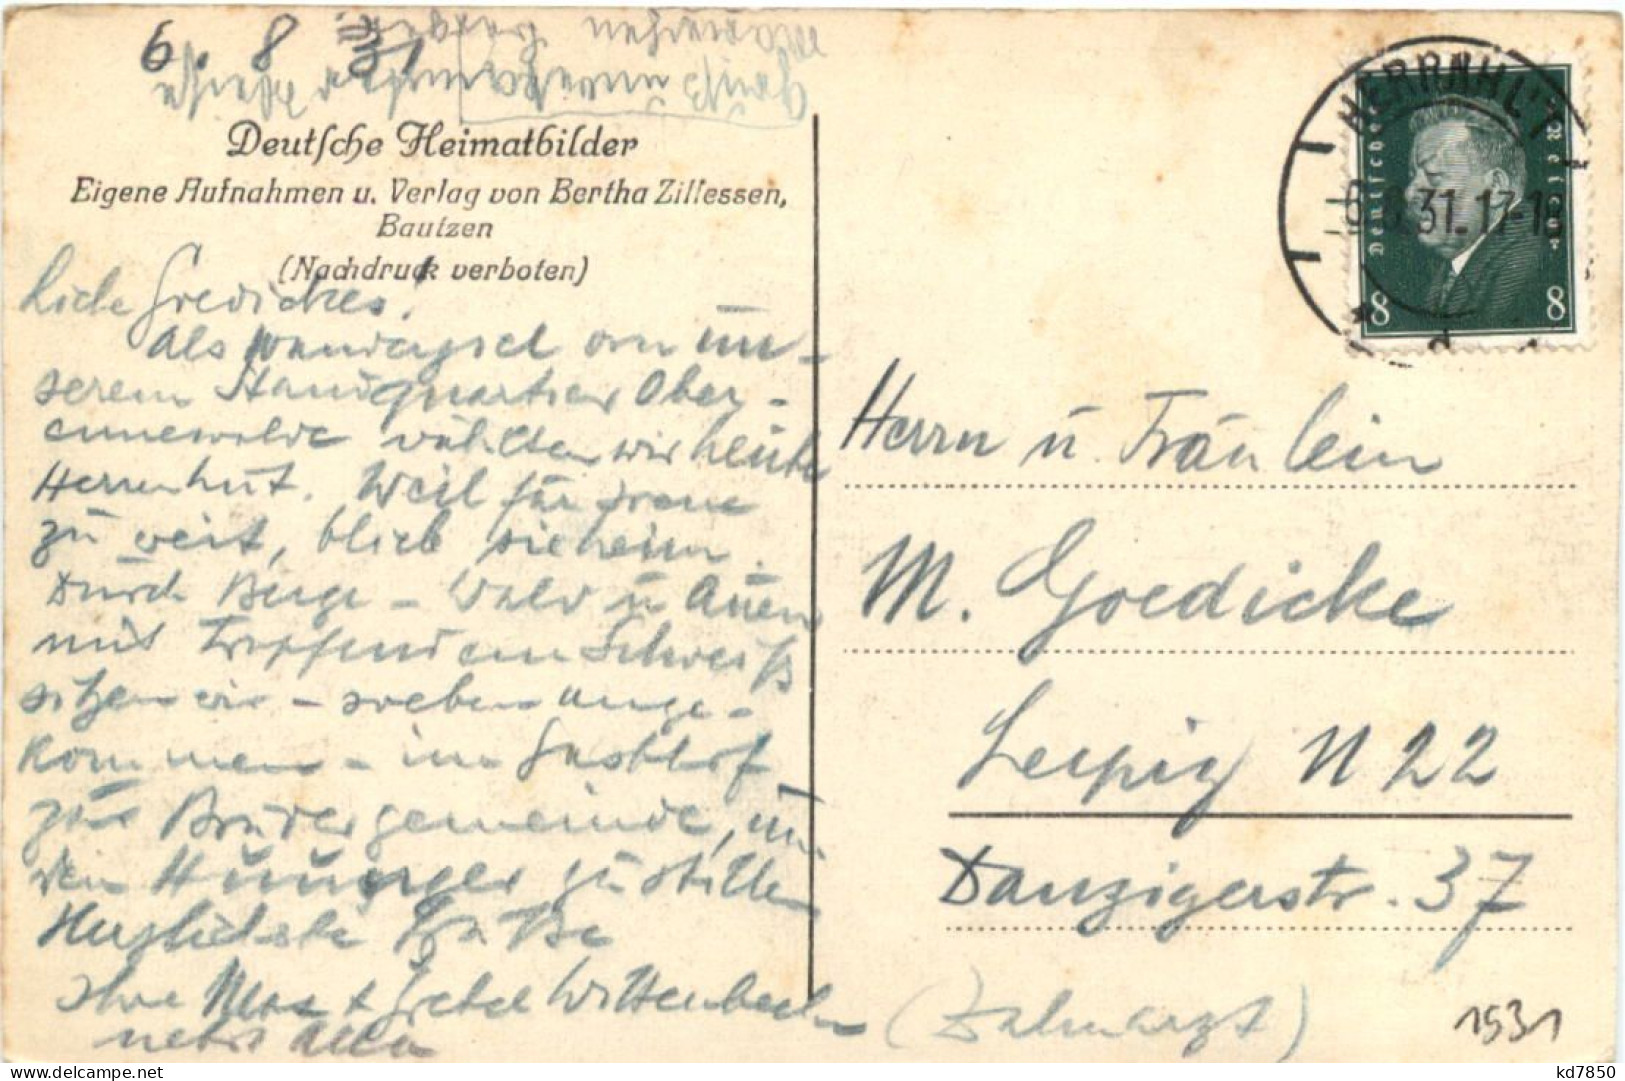 6. 8 31
Deutsche Heimatbilder
Eigene Aufnahmen u. Verlag von Bertha Zillessen,
Bautzen
(Nachdruck verboten)
Liebe Goedickes!
Als von un-
serem Standquartier Ober-
cunewalde wählten wir heute
Herrenhut. Weil für
zu weit, blieb sie heim.
Durch Berge - Wald u Auen
mit tropfendem Schweiß
sitzen wir - soeben ange-
kommen - im Gasthof
zur Brüdergemeinde, um
den Huuunger zu stillen
Herzlichste Grüße
Ihre Max + Gretel Wittenbecher
nebst
HERRNHUT
8.31.17-18
Deutsches Reich
8 8
d
Herrn u. Fräulein
M. Goedicke
Leipzig N 22
Danzigerstr. 37
(Zahnarzt)
1531
kd7850